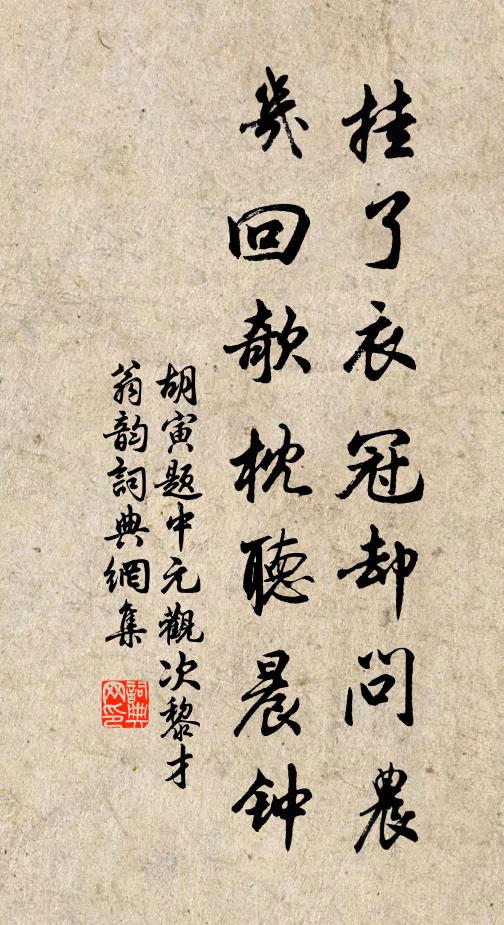 挂了衣冠却問農
幾回欹枕聽晨钟
胡寅題中元觀次黎才
翁韵詞典網集
詞典网印